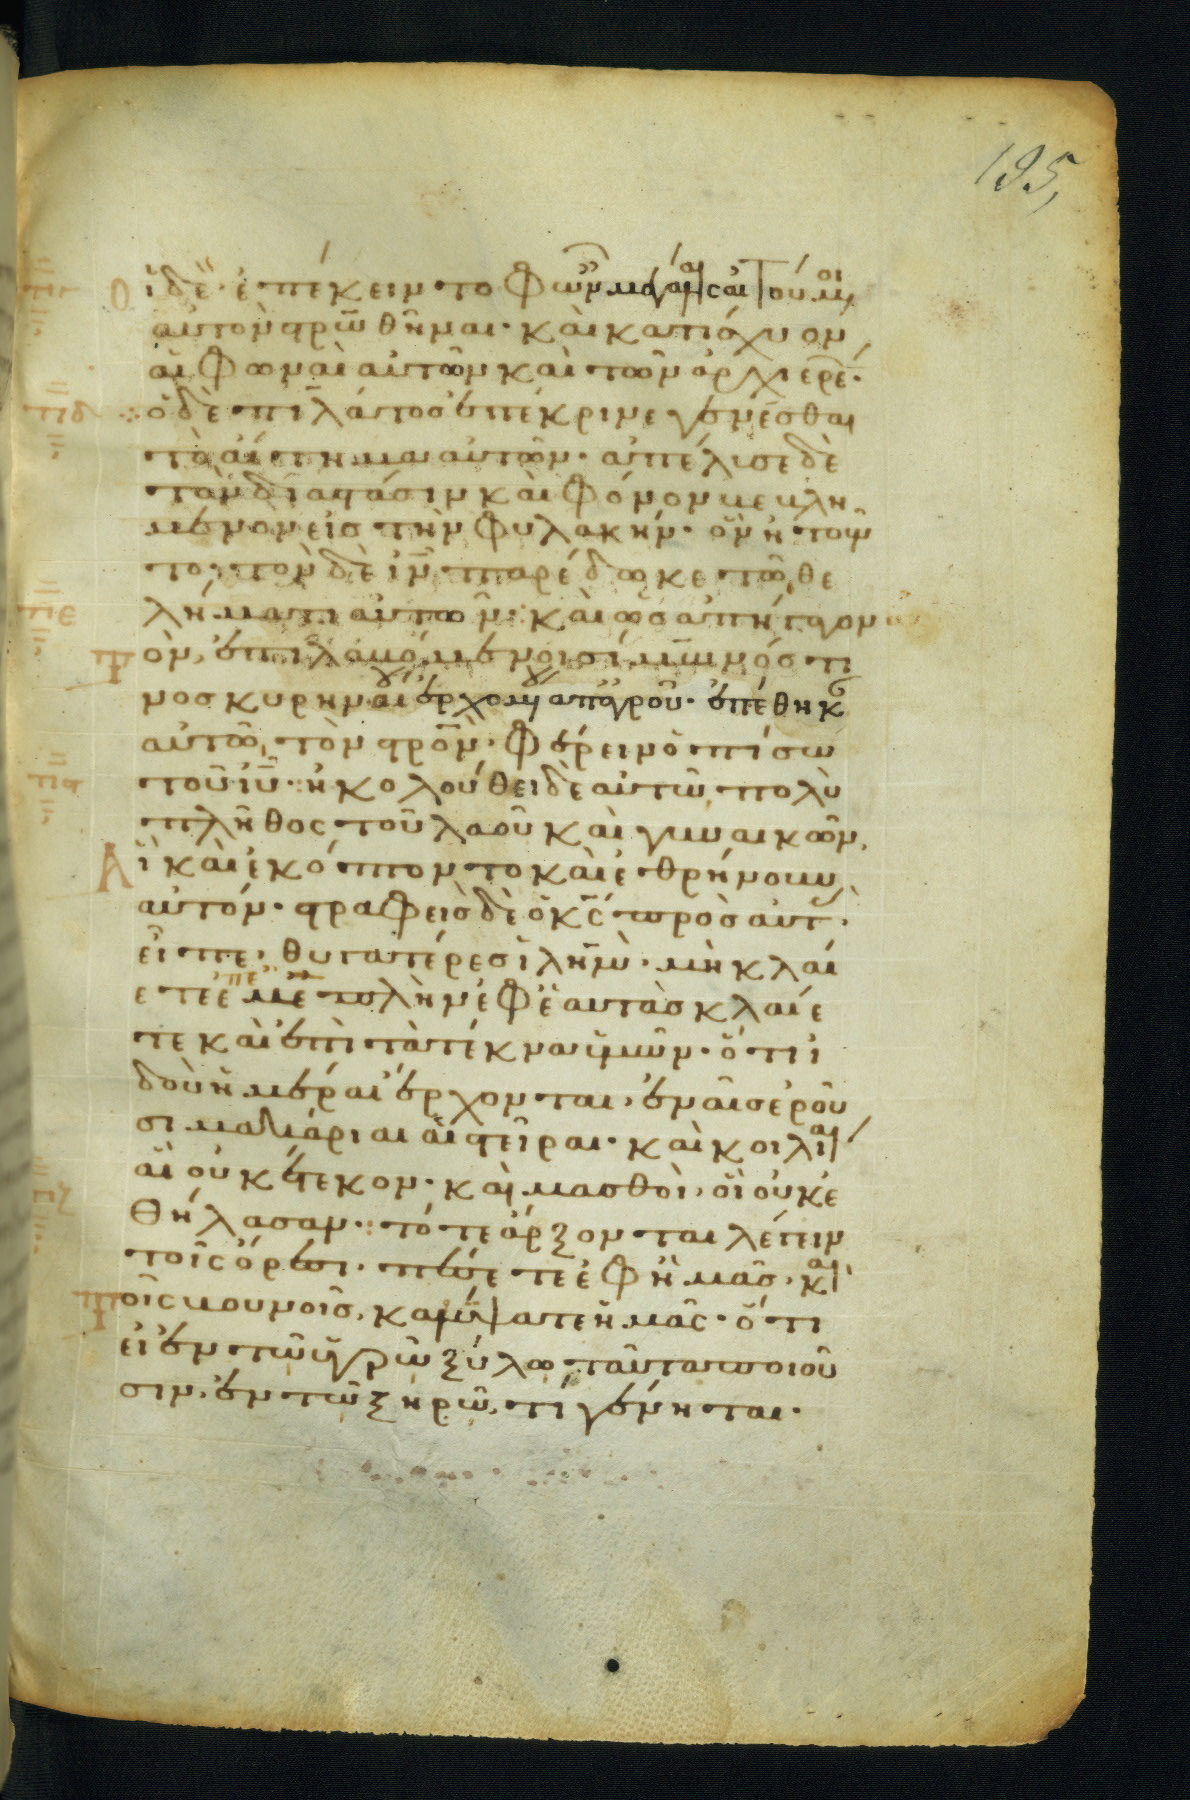 195,
Οἱ δὲ ἐπέκειντο φων μεγάλαις αἰτούμ
αὐτὸν στρωθῆναι· καὶ κατίσχυον
αἱ φωναὶ αὐτῶν καὶ τῶν ἀρχιερέ·
πιδ ὁ δὲ πιλάτος ἐπέκρινε γενέσθαι
τὸ αἴτημα αὐτῶν· ἀπέλυσε δὲ
τὸν διὰ στάσιν καὶ φόνον βεβλη
μένον εἰς τὴν φυλακήν· ὃν ἠτοῦν
το· τὸν δὲ ιν παρέδωκε τῶ θε
πιε λήματι αὐτῶν: καὶ ὡς ἀπήγαγον αὐ
τὸν, ἐπιλαβόμενοι σίμωνός τι
νος κυρηναί ἐρχομ ἀπ ἀγροῦ· ἐπέθηκ
αὐτῶ τὸν στρον· φέρειν ὄπισω
τοῦ ιυ: ἠκολούθει δὲ αὐτῶ πολὺ
πλῆθος τοῦ λαοῦ καὶ γυναικῶν,
Αἳ καὶ ἐκόπτοντο καὶ ἐθρήνουν
αὐτόν· στραφεὶς δὲ ὁ κς πρὸς αὐτ·
εἶπε· θυγατέρες ιλημ· μὴ κλαί
ετε ἐπ ἐμέ πλὴν ἐφ ἑαυτὰς κλαίε
τε καὶ ἐπὶ τὰ τέκνα ὑμῶν· ὅτι ἰ
δοὺ ἡμέραι ἔρχονται, ἐν αἷς ἐροῦ
σι μακάριαι αἱ στεῖραι· καὶ κοιλίαι
αἳ οὐκ ἔτεκον· καὶ μασθοὶ, οἳ οὐκ ἐ
θήλασαν: τότε ἄρξονται λέγειν
τοῖς ὄρεσι· πέσετε ἐφ ἡμᾶς· καὶ
τοῖς βουνοῖς, καλύψατε ἡμᾶς· ὅτι
εἰ ἐν τῶ ὑγρῶ ξύλω ταῦτα ποιοῦ
σιν, ἐν τῶ ξηρῶ, τί γένηται·